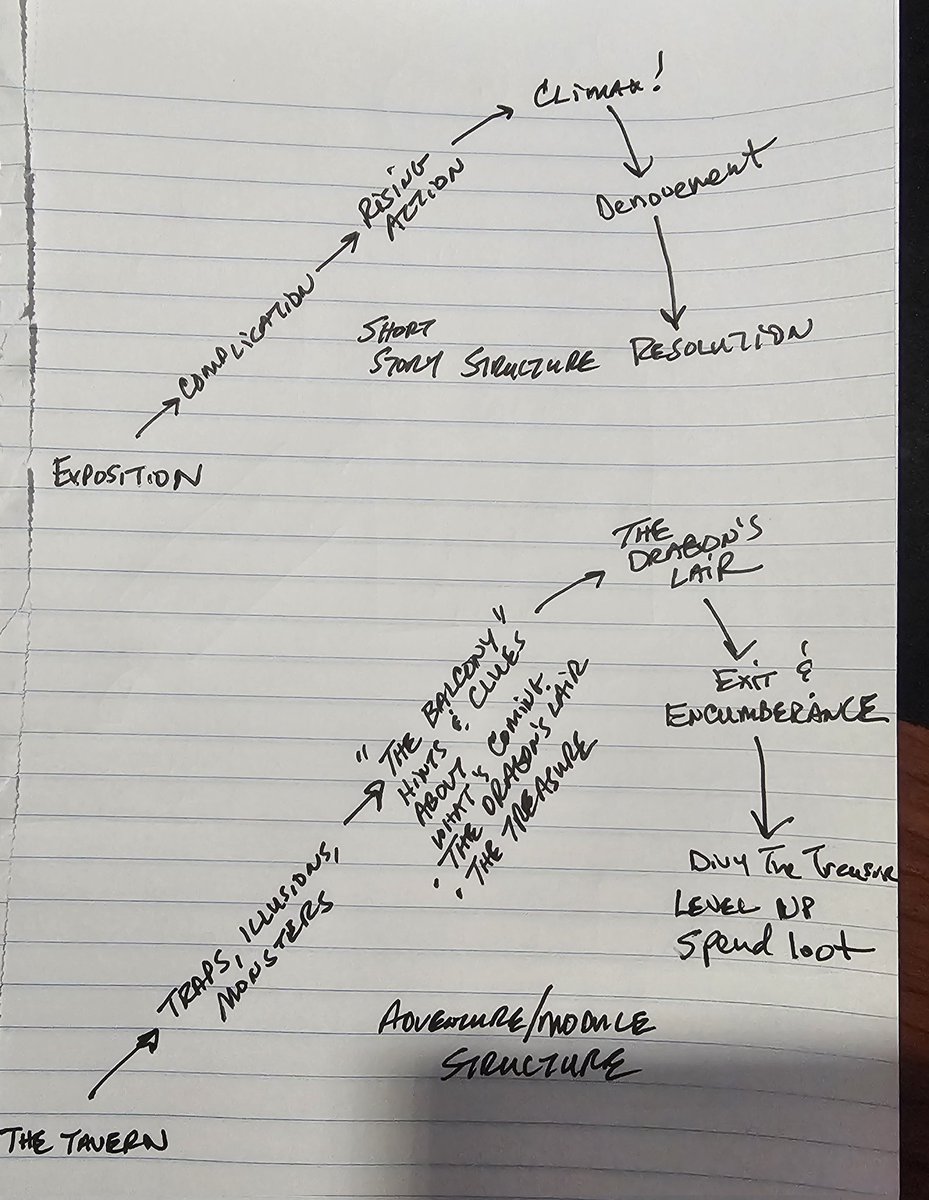 Exposition
Complication
Rising
Action
Climax!
Denovement
Resolution
Short
Story Structure
The Tavern
Traps, Illusions,
Monsters
"The Balcony"
Hints & Clues
About
What's Coming.
· The Dragon's Lair
· The Treasure
The
Dragon's
Lair
Exit &
Encumberance
Divy The Treasure
Level Up
Spend loot
Adventure/Module
Structure